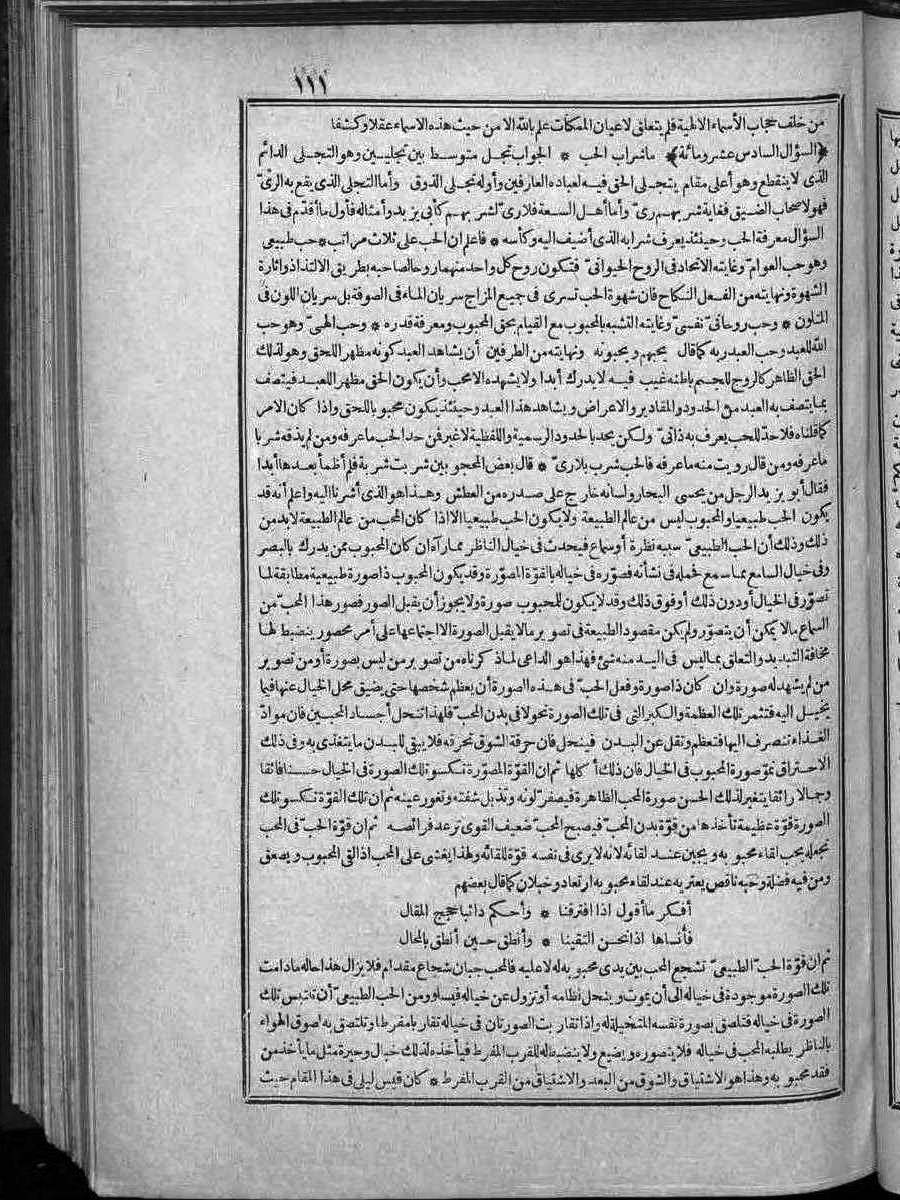 ١١١
من خلف حجاب الأسماء الالهية فلم يتعلق لاعيان الممكنات علم بالله الا من حيث هذه الاسماء عقلا وكشفا
﴿السؤال السادس عشر ومائة﴾ ما شراب الحب * الجواب تجل متوسط بين تجليين وهو التجلى الدائم
الذى لا ينقطع وهو أعلى مقام يتجلى الحق فيه لعباده العارفين وأوله تجلى الذوق وأما التجلى الذى يقع به الرىّ
فهو لاصحاب الضيق فغاية شربهم رىّ وأما أهل السعة فلا رىّ لشربهم كأبى يزيد وأمثاله فأول ما أقدّم فى هذا
السؤال معرفة الحب وحينئذ يعرف شرابه الذى أضيف اليه وكأسه * فاعلم ان الحب على ثلاث مراتب * حب طبيعى
وهو حب العوامّ وغايته الاتحاد فى الروح الحيوانىّ فتكون روح كل واحد منهما روحا لصاحبه بطريق الالتذاذ واثارة
الشهوة ونهايته من الفعل النكاح فان شهوة الحب تسرى فى جميع المزاج سريان الماء فى الصوفة بل سريان اللون فى
المتلون * وحب روحانىّ نفسىّ وغايته التشبه بالمحبوب مع القيام بحق المحبوب ومعرفة قدره * وحب الهىّ وهو حب
الله للعبد وحب العبد ربه كما قال يحبهم ويحبونه ونهايته من الطرفين أن يشاهد العبد كونه مظهر اللحق وهو لذلك
الحق الظاهر كالروح للجسم باطنه غيب فيه لا يدرك أبدا ولا يشهده الا محب وأن يكون الحق مظهر اللعبد فيتصف
بما يتصف به العبد من الحدود والمقادير والاعراض ويشاهد هذا العبد وحينئذ يكون محبو باللحق واذا كان الامر
كما قلناه فلا حدّ للحب يعرف به ذاتىّ ولكن يحد بالحدود الرسمية واللفظية لا غير فمن حد الحب ما عرفه ومن لم يذقه شربا
ما عرفه ومن قال رويت منه ما عرفه فالحب شرب بلا رىّ * قال بعض المحجوبين شربت شربة فلم أظمأ بعدها أبدا
فقال أبو يزيد الرجل من يحسى البحار ولسانه خارج على صدره من العطش وهذا هو الذى أشرنا اليه واعلم أنه قد
يكون الحب طبيعيا والمحبوب ليس من عالم الطبيعة ولا يكون الحب طبيعيا الا اذا كان المحب من عالم الطبيعة لا بد من
ذلك وذلك أن الحب الطبيعىّ سببه نظرة أو سماع فيحدث فى خيال الناظر مما رآه ان كان المحبوب ممن يدرك بالبصر
وفى خيال السامع مما سمع فحمله فى نشأته فصوّره فى خياله بالقوّة المصوّرة وقد يكون المحبوب ذا صورة طبيعية مطابقة لما
تصوّر فى الخيال أو دون ذلك أو فوق ذلك وقد لا يكون للمحبوب صورة ولا يجوز أن يقبل الصور فصور هذا المحبّ من
السماع ما لا يمكن أن يتصوّر ولم يكن مقصود الطبيعة فى تصوير ما لا يقبل الصورة الا اجتماعها على أمر محصور ينضبط لها
مخافة التبديد والتعلق بما ليس فى اليد منه شئ فهذا هو الداعى لما ذكرناه من تصوير من ليس بصورة أو من تصوير
من لم يشهد له صورة وان كان ذا صورة وفعل الحبّ فى هذه الصورة أن يعظم شخصها حتى يضيق محل الخيال عنها فيما
يخيل اليه فتثمر تلك العظمة والكبر التى فى تلك الصورة نحولا فى بدن المحبّ فلهذا تنحل أجساد المحبين فان موادّ
الغذاء تنصرف اليها فتعظم وتقل عن البدن فينحل فان حرقة الشوق تحرقه فلا يبقى للبدن ما يتغذى به وفى ذلك
الاحتراق نموّ صورة المحبوب فى الخيال فان ذلك أكلها ثم ان القوّة المصوّرة تكسو تلك الصورة فى الخيال حسنا فائقا
وجمالا رائقا يتغير لذلك الحسن صورة المحب الظاهرة فيصفرّ لونه وتذبل شفته وتغور عينه ثم ان تلك القوة تكسو تلك
الصورة قوّة عظيمة تأخذها من قوّة بدن المحبّ فيصبح المحبّ ضعيف القوى ترعد فرائصه ثم ان قوّة الحبّ فى المحب
تجعله يحب لقاء محبوبه ويجبن عند لقائه لانه لا يرى فى نفسه قوّة للقائه ولهذا يغشى على المحب اذا لقى المحبوب ويصعق
ومن فيه فضلة وحبه ناقص يعتريه عند لقاء محبوبه ارتعاد وخبلان كما قال بعضهم
أفكر ما أقول اذا افترقنا * وأحكم دائبا حجج المقال
فأنساها اذا نحن التقينا * وأنطق حين أنطق بالمحال
ثم ان قوّة الحبّ الطبيعىّ تشجع المحب بين يدى محبوبه له لا عليه فالمحب جبان شجاع مقدام فلا يزال هذا حاله مادامت
تلك الصورة موجودة فى خياله الى أن يموت وينحل نظامه أو تزول عن خياله فيسلو ومن الحب الطبيعىّ أن تلتبس تلك
الصورة فى خياله فتلصق بصورة نفسه المتخيلة له واذا تقاربت الصورتان فى خياله تقاربا مفرطا وتلتصق به لصوق الهواء
بالناظر يطلبه المحب فى خياله فلا يتصوره ويضيع ولا ينضبط له للقرب المفرط فيأخذه لذلك خبال وحيرة مثل ما يأخذ من
فقد محبوبه وهذا هو الاشتياق والشوق من البعد والاشتياق من القرب المفرط * كان قيس ليلى فى هذا المقام حيث